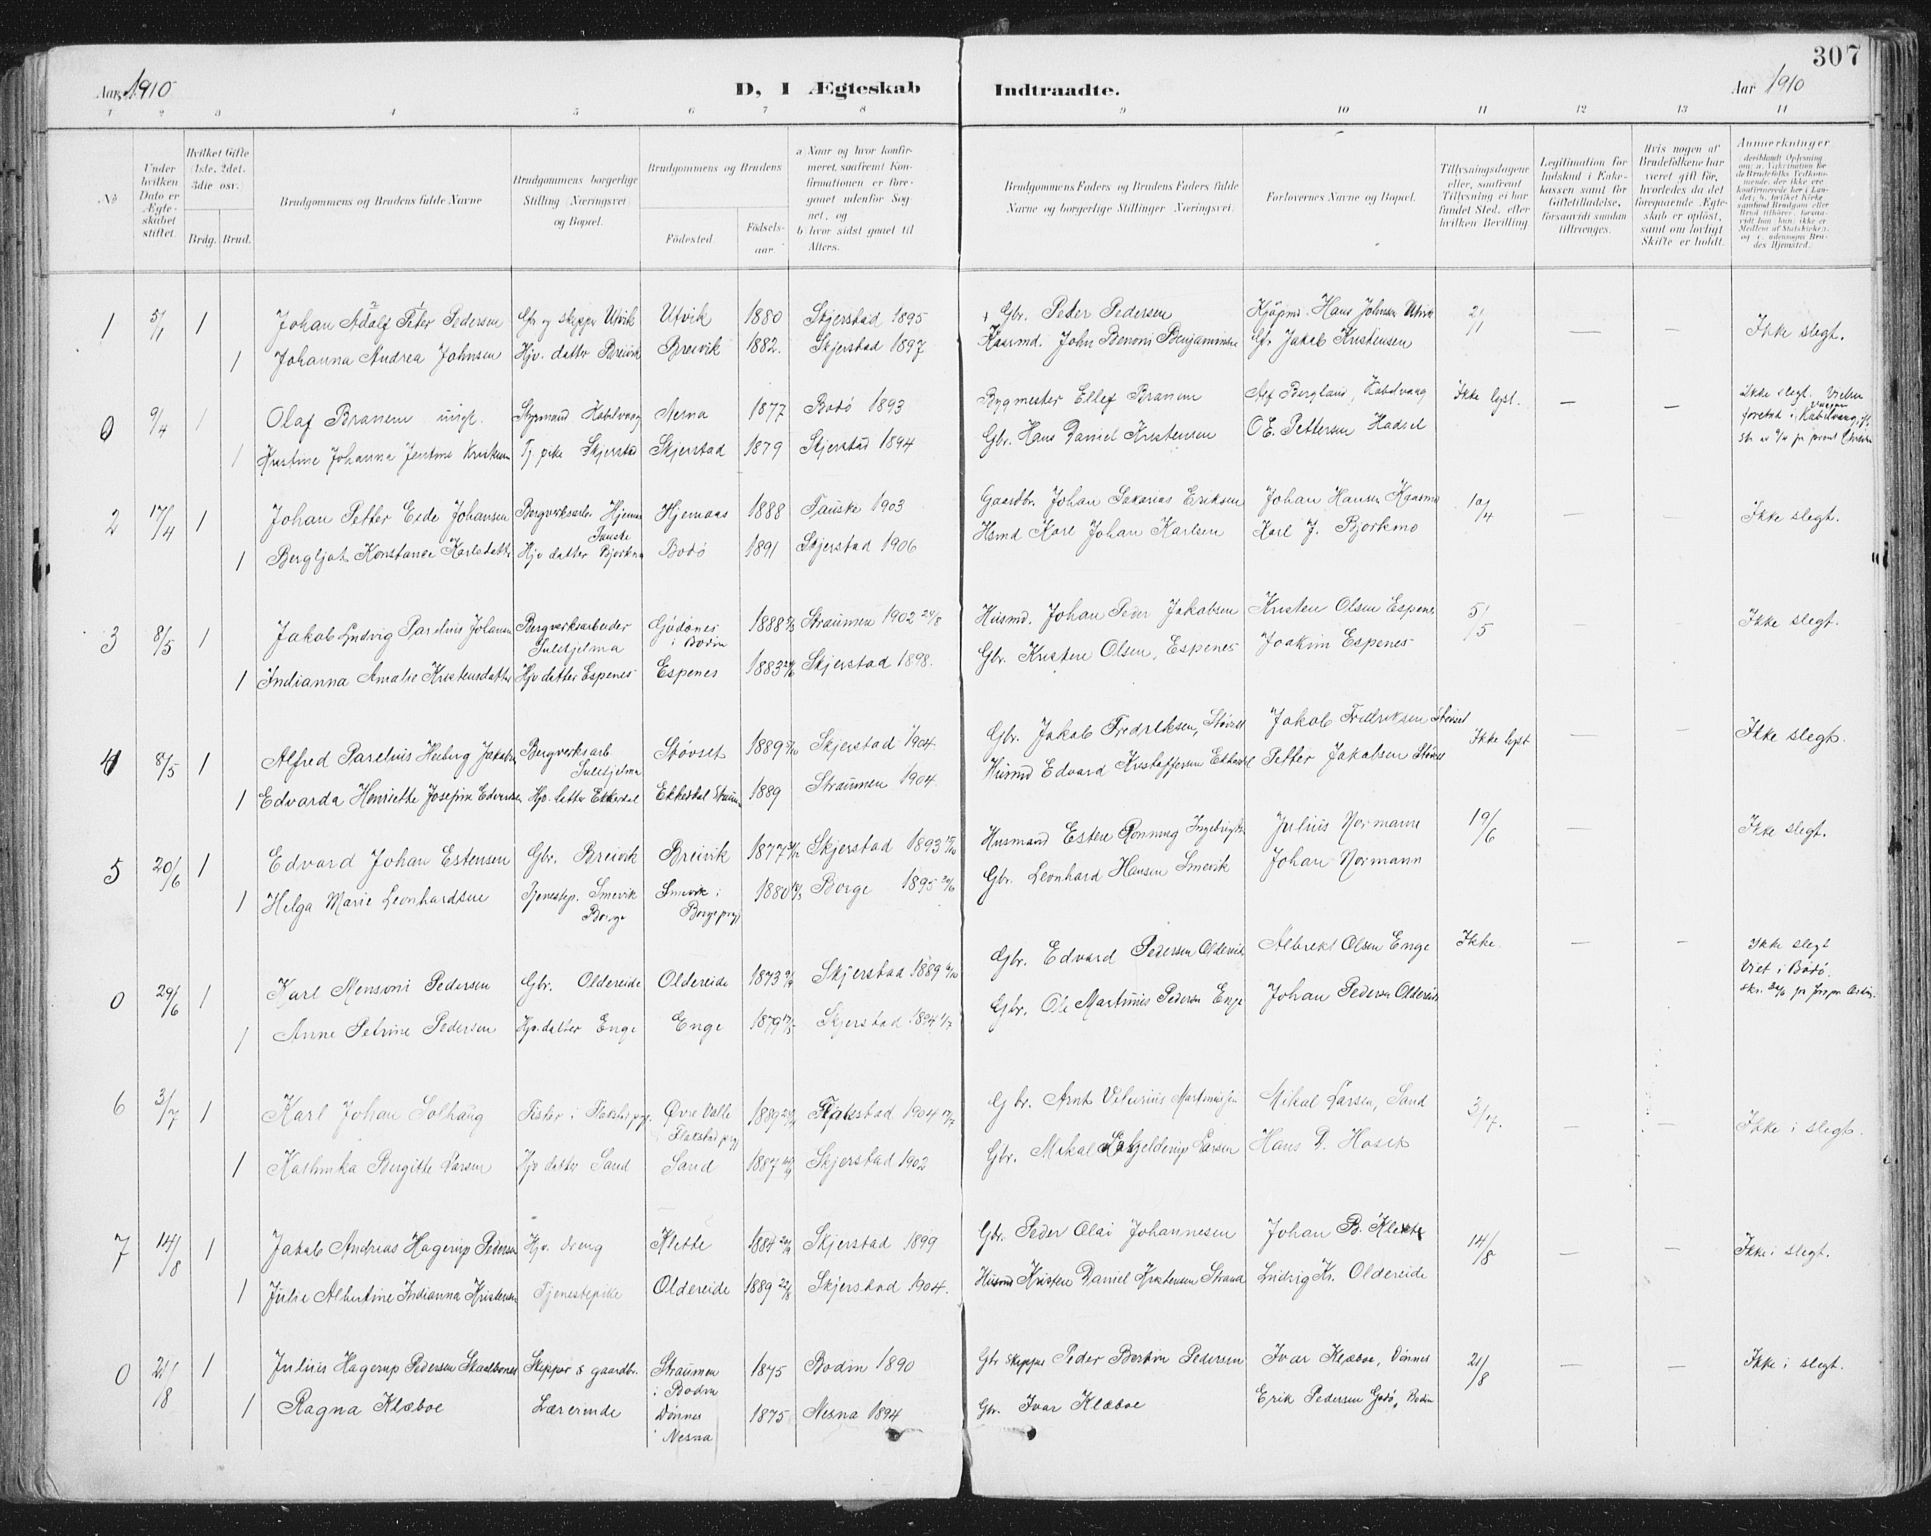 307
Aar 1910
D, I Ægteskab Indtraadte.
Aar 1910
1 2 3 4 5 6 7 8 9 10 11 12 13 14
No
Under hvilken Dato er Ægteskabet stiftet.
Hvilket Gifte 1ste. 2det. 3die osv.
Brdg. Brud.
Brudgommens og Brudens fulde Navne
Brudgommens borgerlige Stilling Næringsvei og Bopæl.
Brudgommens og Brudens
Fødested.
Fødselsaar
a Naar og hvor konfirmeret, saafremt Konfirmationen er foregaaet udenfor Sognet, og
b hvor sidst gaaet til Alters.
Brudgommens Faders og Brudens Faders fulde Navne og borgerlige Stillinger Næringsvei.
Forlovernes Navne og Bopæl.
Tillysningsdagene eller, saafremt Tillysning ei har fundet Sted, efter hvilken Bevilling.
Legitimation for Indskud i Enkekassen samt for Giftetilladelse, forsaavidt saadan tiltrænges.
Hvis nogen af Brudefolkene har været gift før, hvorledes da det foregaaende Ægteskab er opløst, samt om lovligt Skifte er holdt.
Anmerkninger
1 5/1 1 Johan Adolf Peter Pedersen Gbr og skipper Utvik Utvik 1880 Skjerstad 1895 Gbr. Peder Pedersen Kjøpmd. Hans Johnsen Utvik 2/1 — — Ikke slegt.
1 Johanna Andrea Johnsen Hjv. datter Breivik Breivik 1882. Skjerstad 1897 Kaarmd. John Benoni Benjaminsen Gbr Jakob Kristensen
0 9/4 1 Olaf Branem ungk. Styrmand Kabelvaag Nesna 1877 Bodø 1893 Bygmester Ellef Branem Alf Bergland, Kabelvaag Ikke lyst. — — Ikke slegt. Vielsen foretat i Kabelvaag
1 Kristine Johanna Jentine Kristensen Tj. pike Skjerstad Skjerstad 1879 Skjerstad 1894 Gbr. Hans Daniel Kristensen O E. Pettersen Hadsel
2 17/4 1 Johan Petter Eide Johansen Bergverksarb Hjemaas Fauske Hjemaas 1888 Fauske 1903 Gaardbr. Johan Sakarias Eriksen Johan Hansen 10/4 — — Ikke slegt.
1 Bergljot Konstance Karlsdatter Hjv datter Bjørkmo Bodø 1891 Skjerstad 1906 Hsmd Karl Johan Karlsen Karl J. Bjorkmo
3 8/5 1 Jakob Ludvig Parelius Johansen Bergverksarbeider Sulitjelma Gjødønes i Bodin 1888 Straumen 1902 24/8 Husmd. Johan Peder Jakobsen Kristen Olsen Espenes 5/5 — — Ikke slegt.
1 Indianna Amalie Kristensdatter Hjv datter Espenes Espenes 1883 Skjerstad 1898. Gbr. Kristen Olsen, Espenes Joakim Espenes
4 8/5 1 Alfred Parelius Heiberg Jakobsen Bergverksarb Sulitjelma Støvset 1889 Skjerstad 1904. Gbr. Jakob Fredriksen, Støvset Jakob Fredriksen Støvset Ikke lyst — — Ikke slegt.
1 Edvarda Henriette Josefine Edvardsen Hjv. datter Ekkerdal Ekkerdal Straumen 1889 Straumen 1904. Husmd Edvard Kristoffersen Ekkerdal Petter Jakobsen Støvset
5 20/6 1 Edvard Johan Estensen Gbr. Breivik Breivik 1877 Skjerstad 1893 Husmand Esten Rønning Ingebrigts. Julius Normann 19/6 — — Ikke slegt.
1 Helga Marie Leonhardsen Tjenestep. Smevik Borge Smevik i Borge prgj 1880 Borge 1895 Gbr. Leonhard Hansen Smevik Johan Normann
0 29/6 1 Karl Mensoni Pedersen Gbr. Oldereide Oldereide 1873 Skjerstad 1889 Gbr. Edvard Pedersen Oldereide Albrekt Olsen Enge Ikke. — — Ikke slegt Viet i Bodø.
1 Anne Petrine Pedersen Hjv. datter Enge Enge 1879 Skjerstad 1894 Gbr. Ole Martinus Pedersen Enge Johan Pedersen Oldereide
6 3/7 1 Karl Johan Solhaug Fisker i Flakstad prgj. Øvre Valle Flakstad prgj 1889 Flakstad 1904 Gbr. Arnt Martinussen Mikal Larsen, Sand 3/7. — — Ikke i slegt.
1 Kathinka Bergitte Larsen Hjv datter Sand Sand 1887 Skjerstad 1902 Gbr. Mikal Larsen Hans D. Hoset
7 14/8 1 Jakob Andreas Hagerup Pedersen Hjv. dreng Klette 1884 Skjerstad 1899 Gbr. Peder Olai Johannesen Johan B. Klette 14/8 — — Ikke i slegt.
1 Julie Albertine Indianna Kristensen Tjenestepike Oldereide 1889 22/8 Skjerstad 1904. Husmd Kristen Daniel Kristensen Strand Ludvig Kr. Oldereide
0 21/8 1 Julius Hagerup Pedersen Skaalbones Skipper & gaardbr. Straumen i Bodin 1875 Bodin 1890 Gbr skipper Peder Bertin Pedersen Ivar Klæboe, Dønnes 21/8 — — Ikke i slegt.
1 Ragna Klæboe Lærerinde Dønnes i Nesna 1875 Nesna 1894 Gbr. Ivar Klæboe Erik Pedersen Godø, Bodin